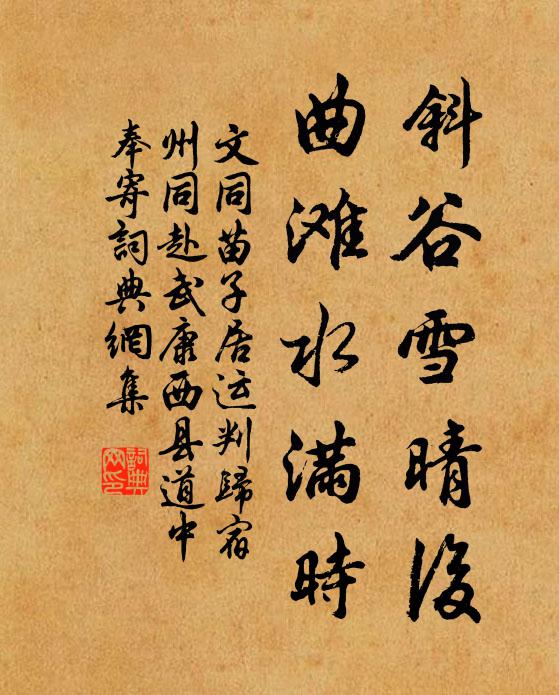 斜谷雪晴後
曲滩水满時
文同苗子居运判歸宿
州同赴武康西县道中
奉寄詞典網集
詞典網印